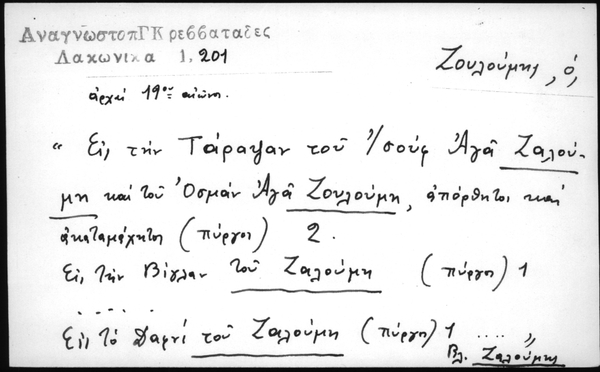 ΑναγνωστοπΓΚρεββαταδες
Λακωνικα 1, 201
Ζουλούμης, ὁ,
ἀρχαὶ 19ου αἰῶνος.
" Εἰς τὴν Τάραψαν τοῦ Ἰσούφ Ἀγᾶ Ζαλού-
μη καὶ τοῦ Ὀσμάν Ἀγᾶ Ζουλούμη, ἀπόρθητοι καὶ
ἀκαταμάχητοι (πύργοι) 2.
Εἰς τὴν Βίγλαν τοῦ Ζαλούμη (πύργοι) 1
.....
Εἰς τὸ Δαφνί τοῦ Ζαλούμη (πύργοι) 1 .... "
Βλ. Ζαλούμης